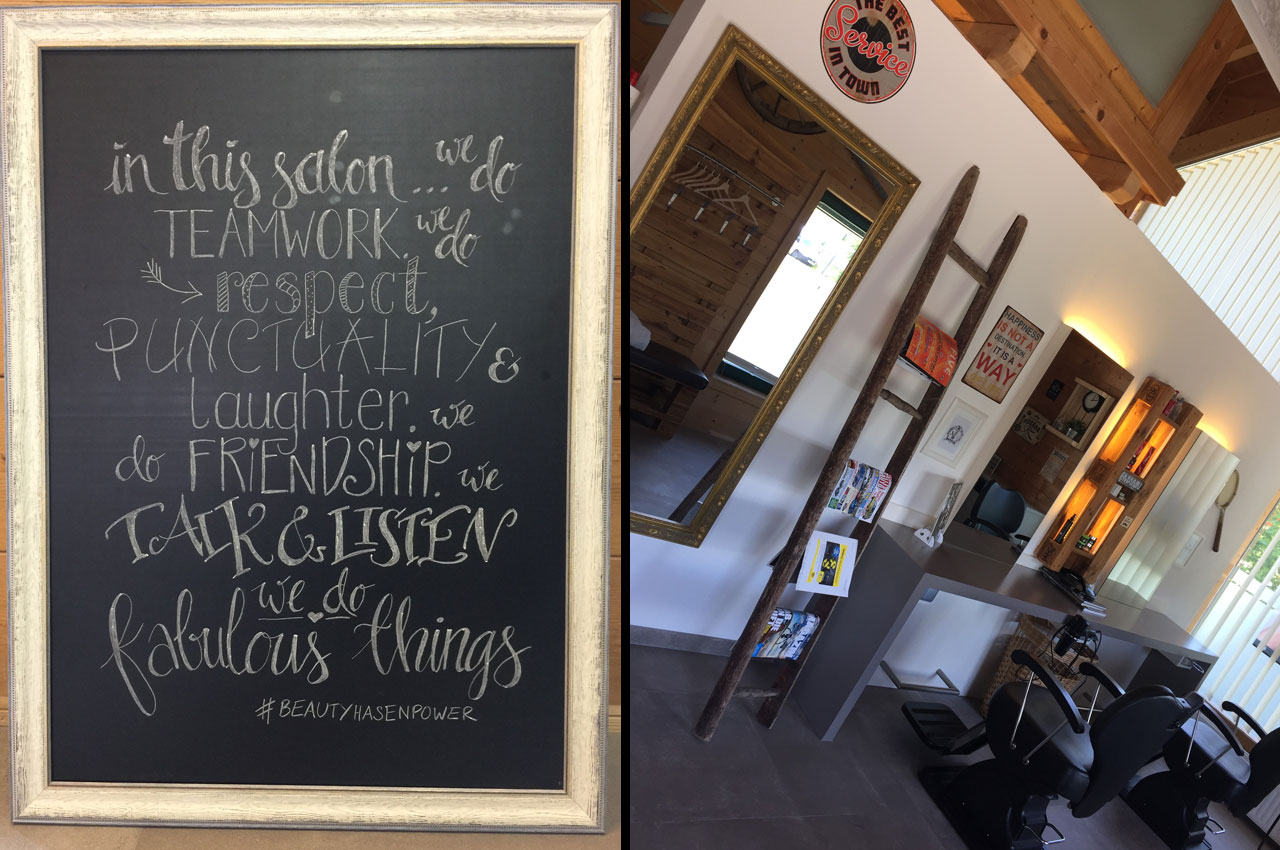 in this salon... we do
TEAMWORK. we do
respect,
PUNCTUALITY &
laughter. we
do FRIENDSHIP. we
TALK & LISTEN
we do
fabulous things
#BEAUTYHASENPOWER
THE BEST
Service
IN TOWN
HAPPINESS
IS NOT A
DESTINATION
IT IS A
WAY